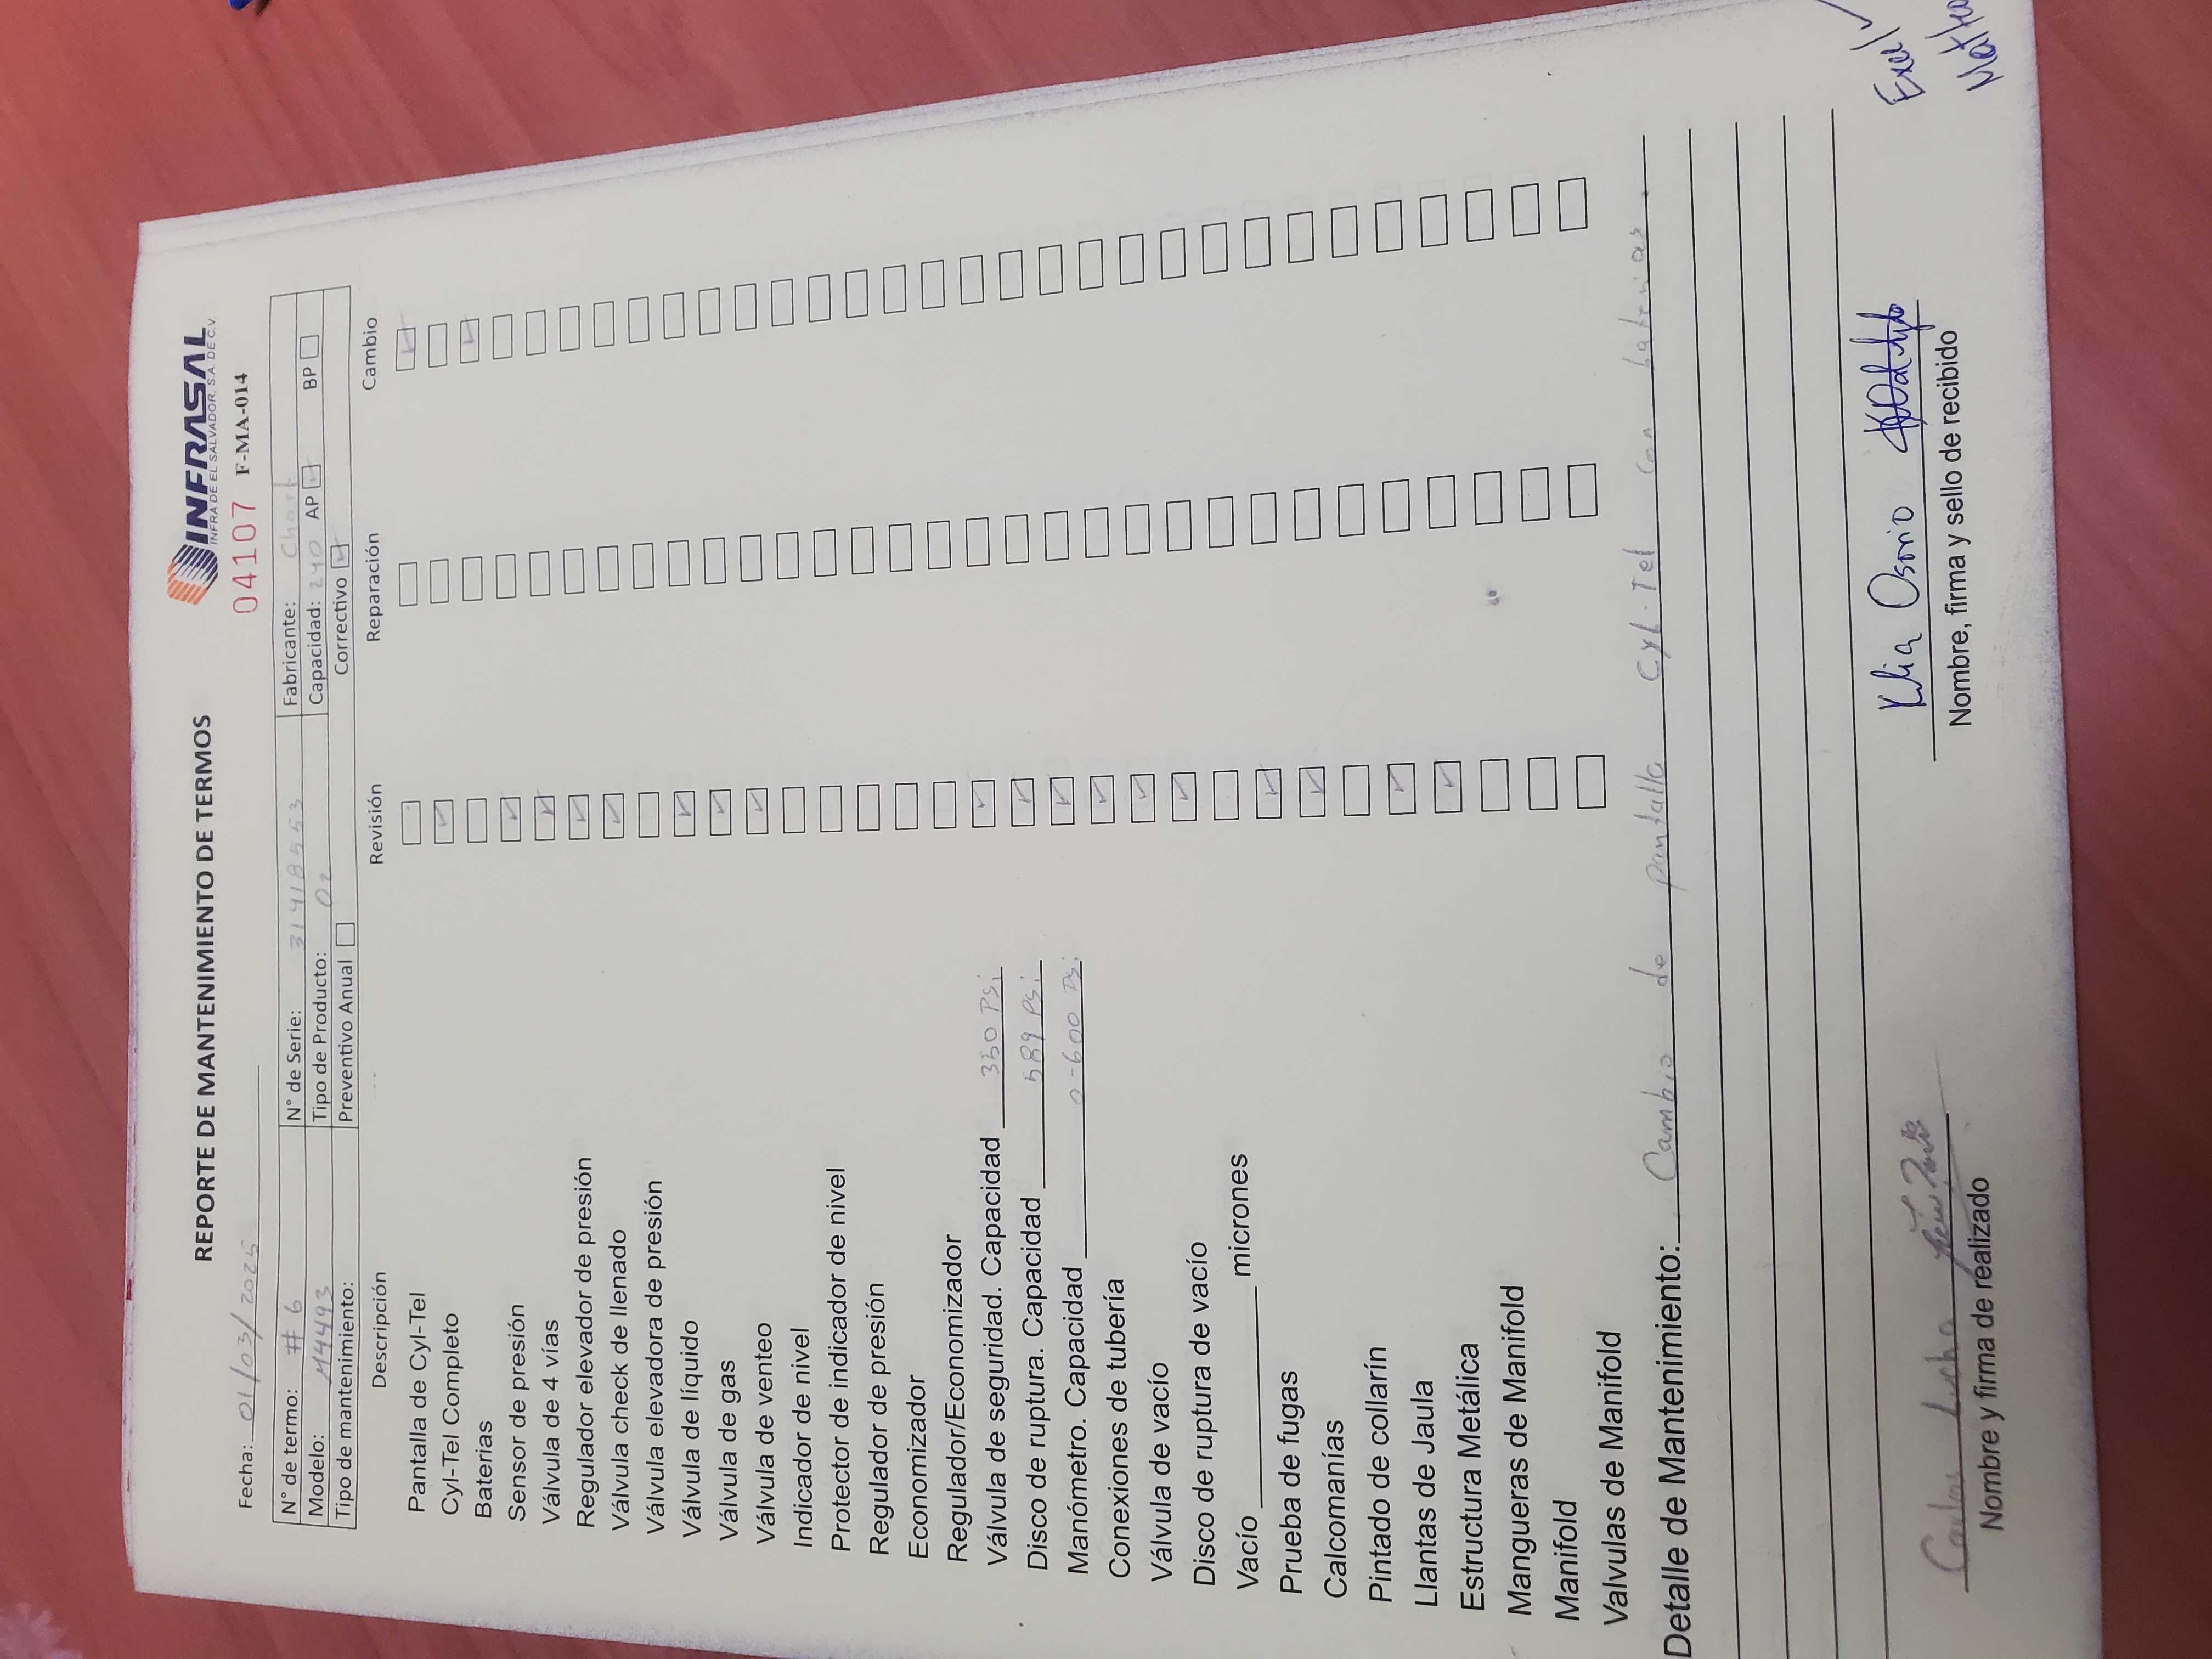 INFRASAL
INFRA DE EL SALVADOR, S.A. DE C.V.
REPORTE DE MANTENIMIENTO DE TERMOS
04107 F-MA-014
Fecha: 01/03/2025
N° de termo: # 6 N° de Serie: 31418553 Fabricante: Chart
Modelo: M44493 Tipo de Producto: O2 Capacidad: 240 AP BP
Tipo de mantenimiento: Preventivo Anual Correctivo
Descripción Revisión Reparación Cambio
Pantalla de Cyl-Tel
Cyl-Tel Completo
Baterias
Sensor de presión
Válvula de 4 vías
Regulador elevador de presión
Válvula check de llenado
Válvula elevadora de presión
Válvula de líquido
Válvula de gas
Válvula de venteo
Indicador de nivel
Protector de indicador de nivel
Regulador de presión
Economizador
Regulador/Economizador
Válvula de seguridad. Capacidad 350 Psi
Disco de ruptura. Capacidad 589 Psi
Manómetro. Capacidad 0-600 Psi
Conexiones de tubería
Válvula de vacío
Disco de ruptura de vacío
Vacío micrones
Prueba de fugas
Calcomanías
Pintado de collarín
Llantas de Jaula
Estructura Metálica
Mangueras de Manifold
Manifold
Valvulas de Manifold
Detalle de Mantenimiento: Cambio de pantalla Cyl-Tel con baterias.
Carlos Osorio
Nombre y firma de realizado Nombre, firma y sello de recibido
Exel